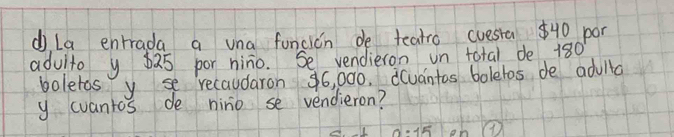 d) La entrada a una función de teatro cuesta $40 por
adulto y $25 por niño. Se vendieron un total de 180
boletos y se recaudaron $6,000. ¿Cuántos boletos de adulto
y cuantos de niño se vendieron?
en ①